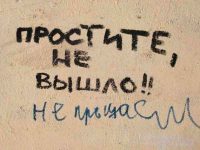 ПРОСТИТЕ,
НЕ
ВЫШЛО!!
не прощаем